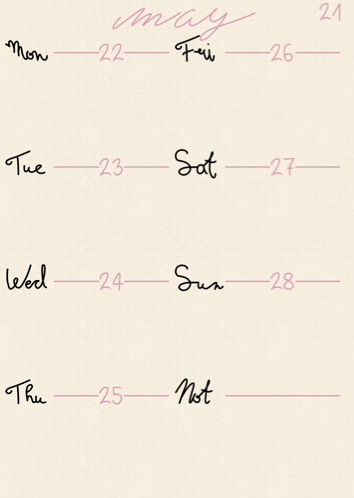 may 21
Mon 22 Fri 26
Tue 23 Sat 27
Wed 24 Sun 28
Thu 25 Not